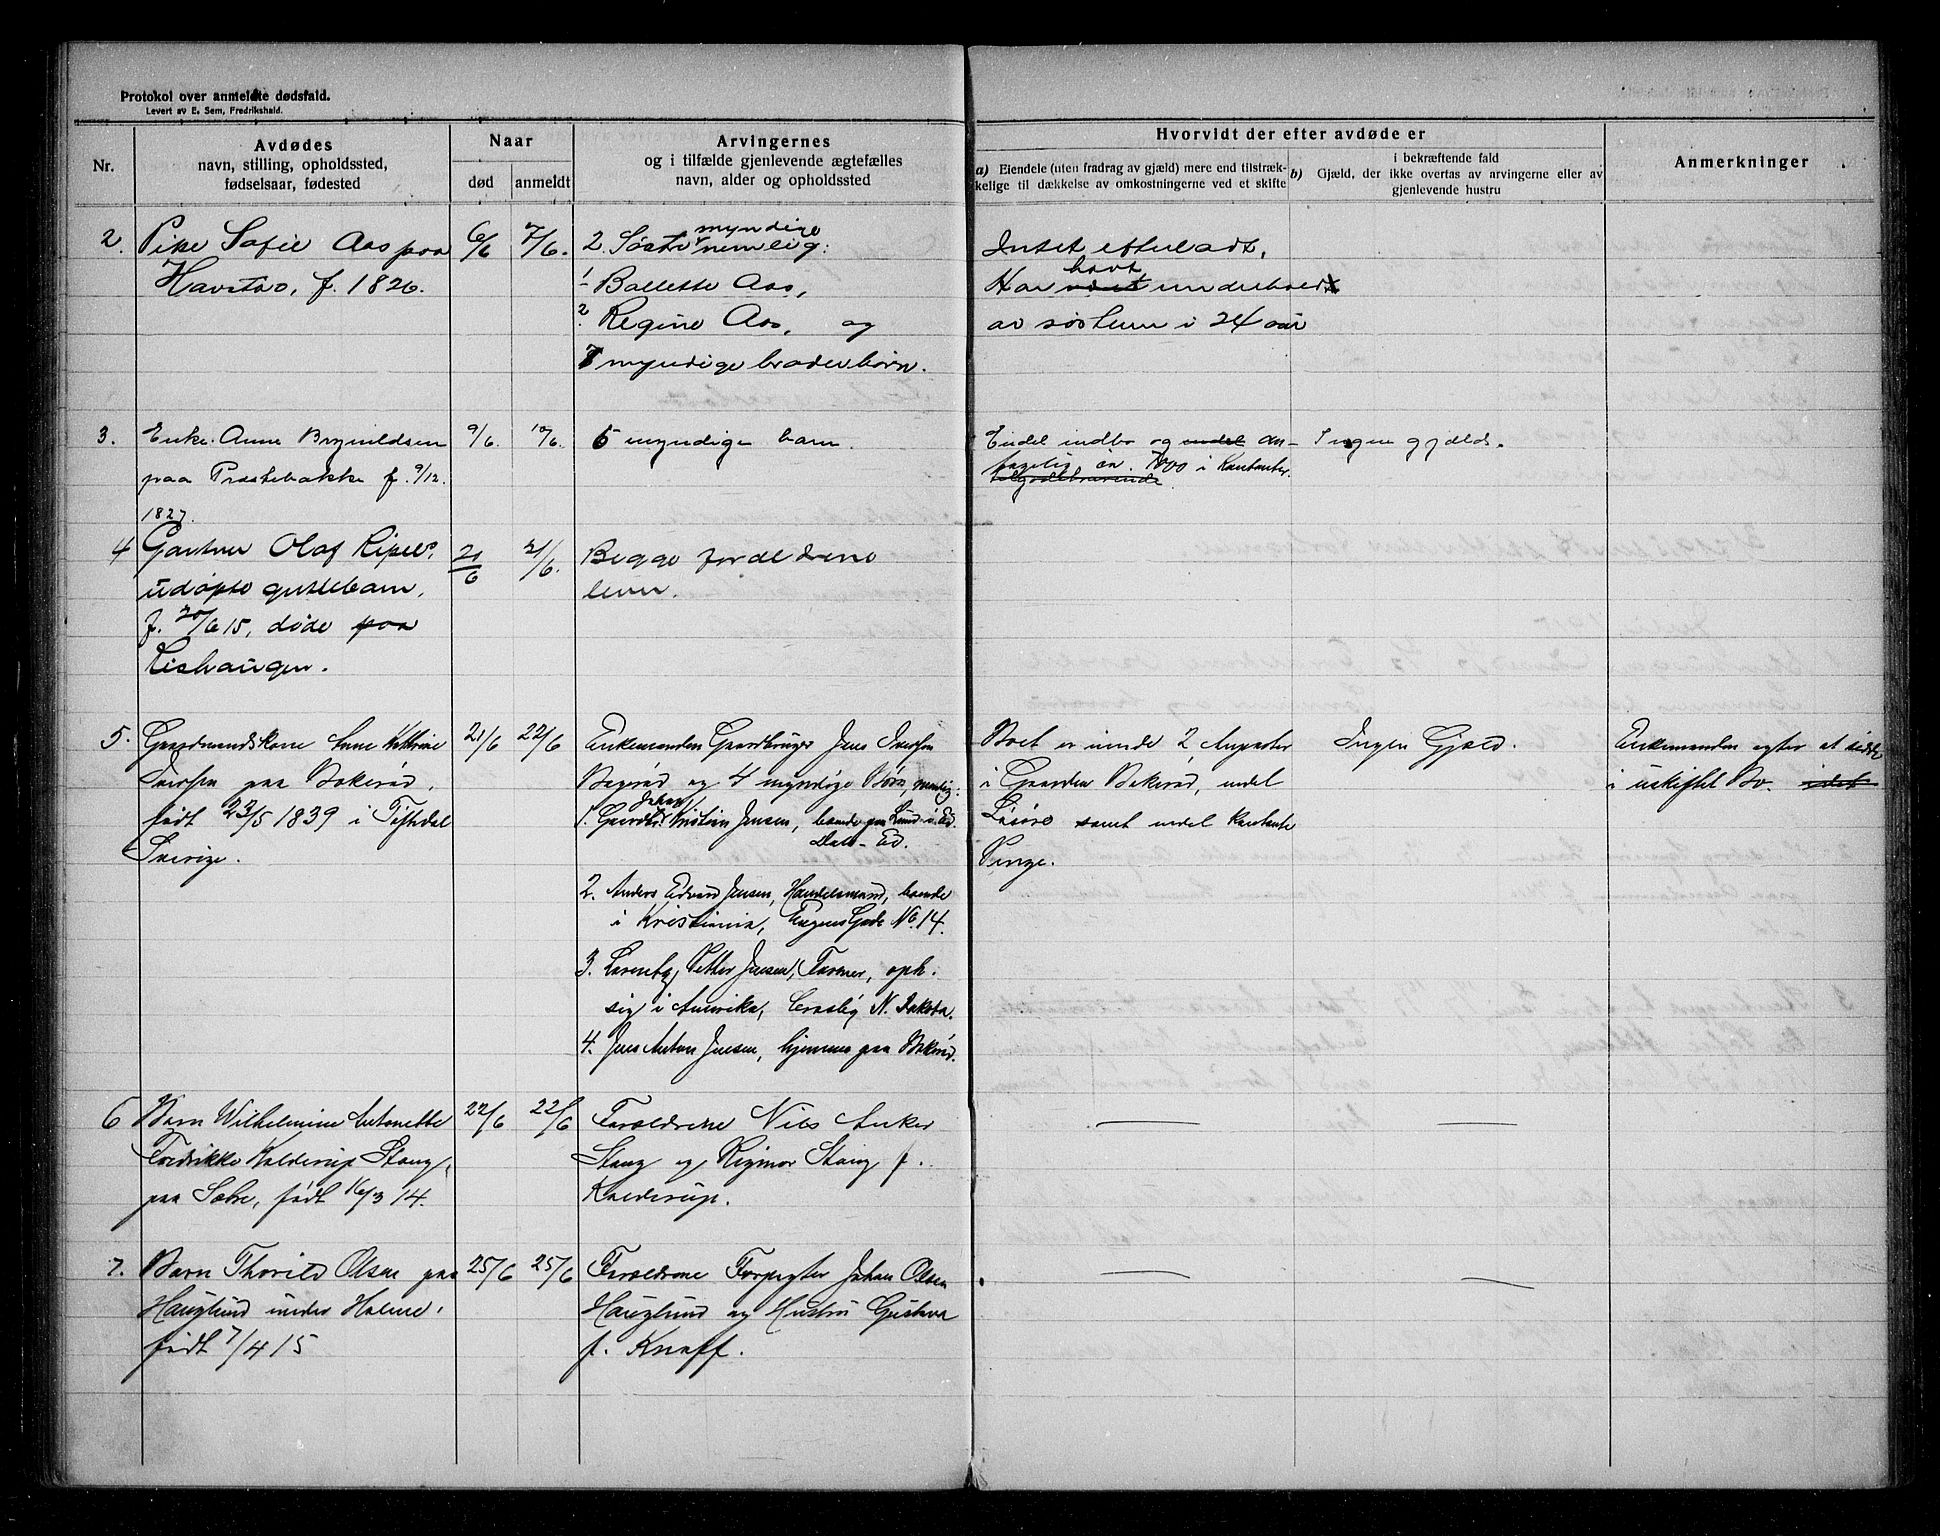 Protokol over anmeldte dødsfald.
Levert av E. Sem, Fredrikshald.
Nr.
Avdødes
navn, stilling, opholdssted,
fødselsaar, fødested
Naar
død
anmeldt
Arvingernes
og i tilfælde gjenlevende ægtefælles
navn, alder og opholdssted
Hvorvidt der efter avdøde er
a) Eiendele (uten fradrag av gjæld) mere end tilstræk-
kelige til dækkelse av omkostningerne ved et skifte
i bekræftende fald
b) Gjæld, der ikke overtas av arvingerne eller av
gjenlevende hustru
Anmerkninger
2. Pike Sofie Aas paa
Havstøo, f. 1826.
6/6
7/6.
myndige
2 Søstre nemlig:
1 Bollette Aas,
2. Regine Aas, og
7 myndige broderbørn.
Intet efterladt,
havt
Har været underhold
av søstrene i 24 aar
3. Enke Anne Brynildsen
paa Præstebakke f. 9/12.
1827.
9/6.
10/6.
6 myndige barn.
Endel indbo og endel an-
tagelig ca. 700 i Kontanter.
tilgodehavende
Ingen gjæld.
4 Gartner Olaf
udøpte guttebarn,
f. 20/6 15, døde paa
Rishaugen.
21/6
21/6.
Begge forældrene
lever.
5. Gaardmandskone Anne Kathrine
Iversen paa Bokerød,
født 23/5 1839 i Tistedal
Sverige.
21/6
22/6
Enkemanden Gaardbruger Jens Iversen
Bogerød og 4 myndige Børn, nemlig:
Johan
1. Gaardbr. Kristian Jensen, boende paa Lund i Ed.
Dals-Ed.
2. Anders Edvard Jensen, Handelsmand, boende
i Kristiania, Eugens Gade No. 14.
3. Petter Jensen, Farmer, oph.
sig i Amerika, N. Dakota.
4. Jens Anton Jensen, hjemme paa Bokerød.
Boet er iinde 2 Anparter
i Gaarden Bokerød, endel
Løsøre samt endel kontante
Penge.
Ingen Gjæld.
Enkemanden agter at sidde
i uskiftet Bo.
6 Barn Wilhelmine Antonette
Fredrikke Kolderup Stang,
paa Søbe, født 16/3 14.
22/6
22/6
Forældrene Nils Anker
Stang og Rigmor Stang f.
Kolderup.
7. Barn Thorild Olsen paa
Hauglund under Holme,
født 7/4 15
25/6
25/6
Forældrene Forpagter Johan Olsen
Hauglund og Hustru Gustava
f. Knoff.